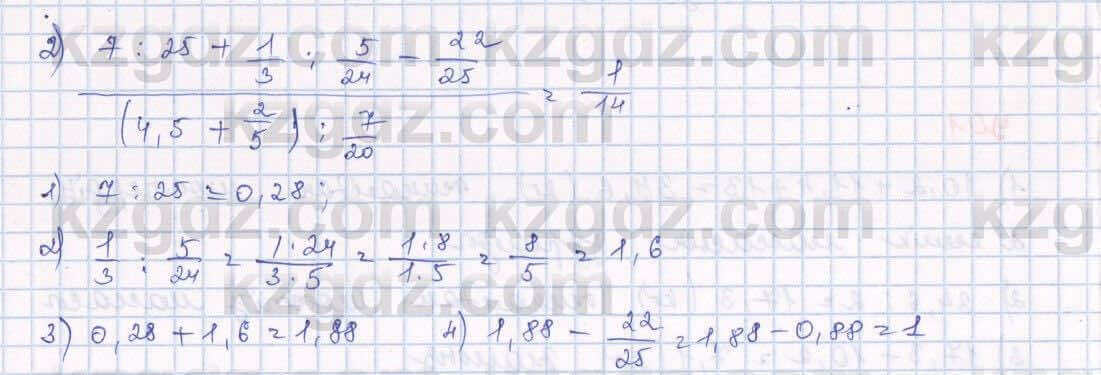 2) 7 : 25 + 1/3 : 5/24 - 22/25
(4,5 + 2/5) : 7/20 = 1/14
1) 7 : 25 = 0,28;
2) 1/3 : 5/24 = 1·24/3·5 = 1·8/1·5 = 8/5 = 1,6
3) 0,28 + 1,6 = 1,88 4) 1,88 - 22/25 = 1,88 - 0,88 = 1
kzgdz.com